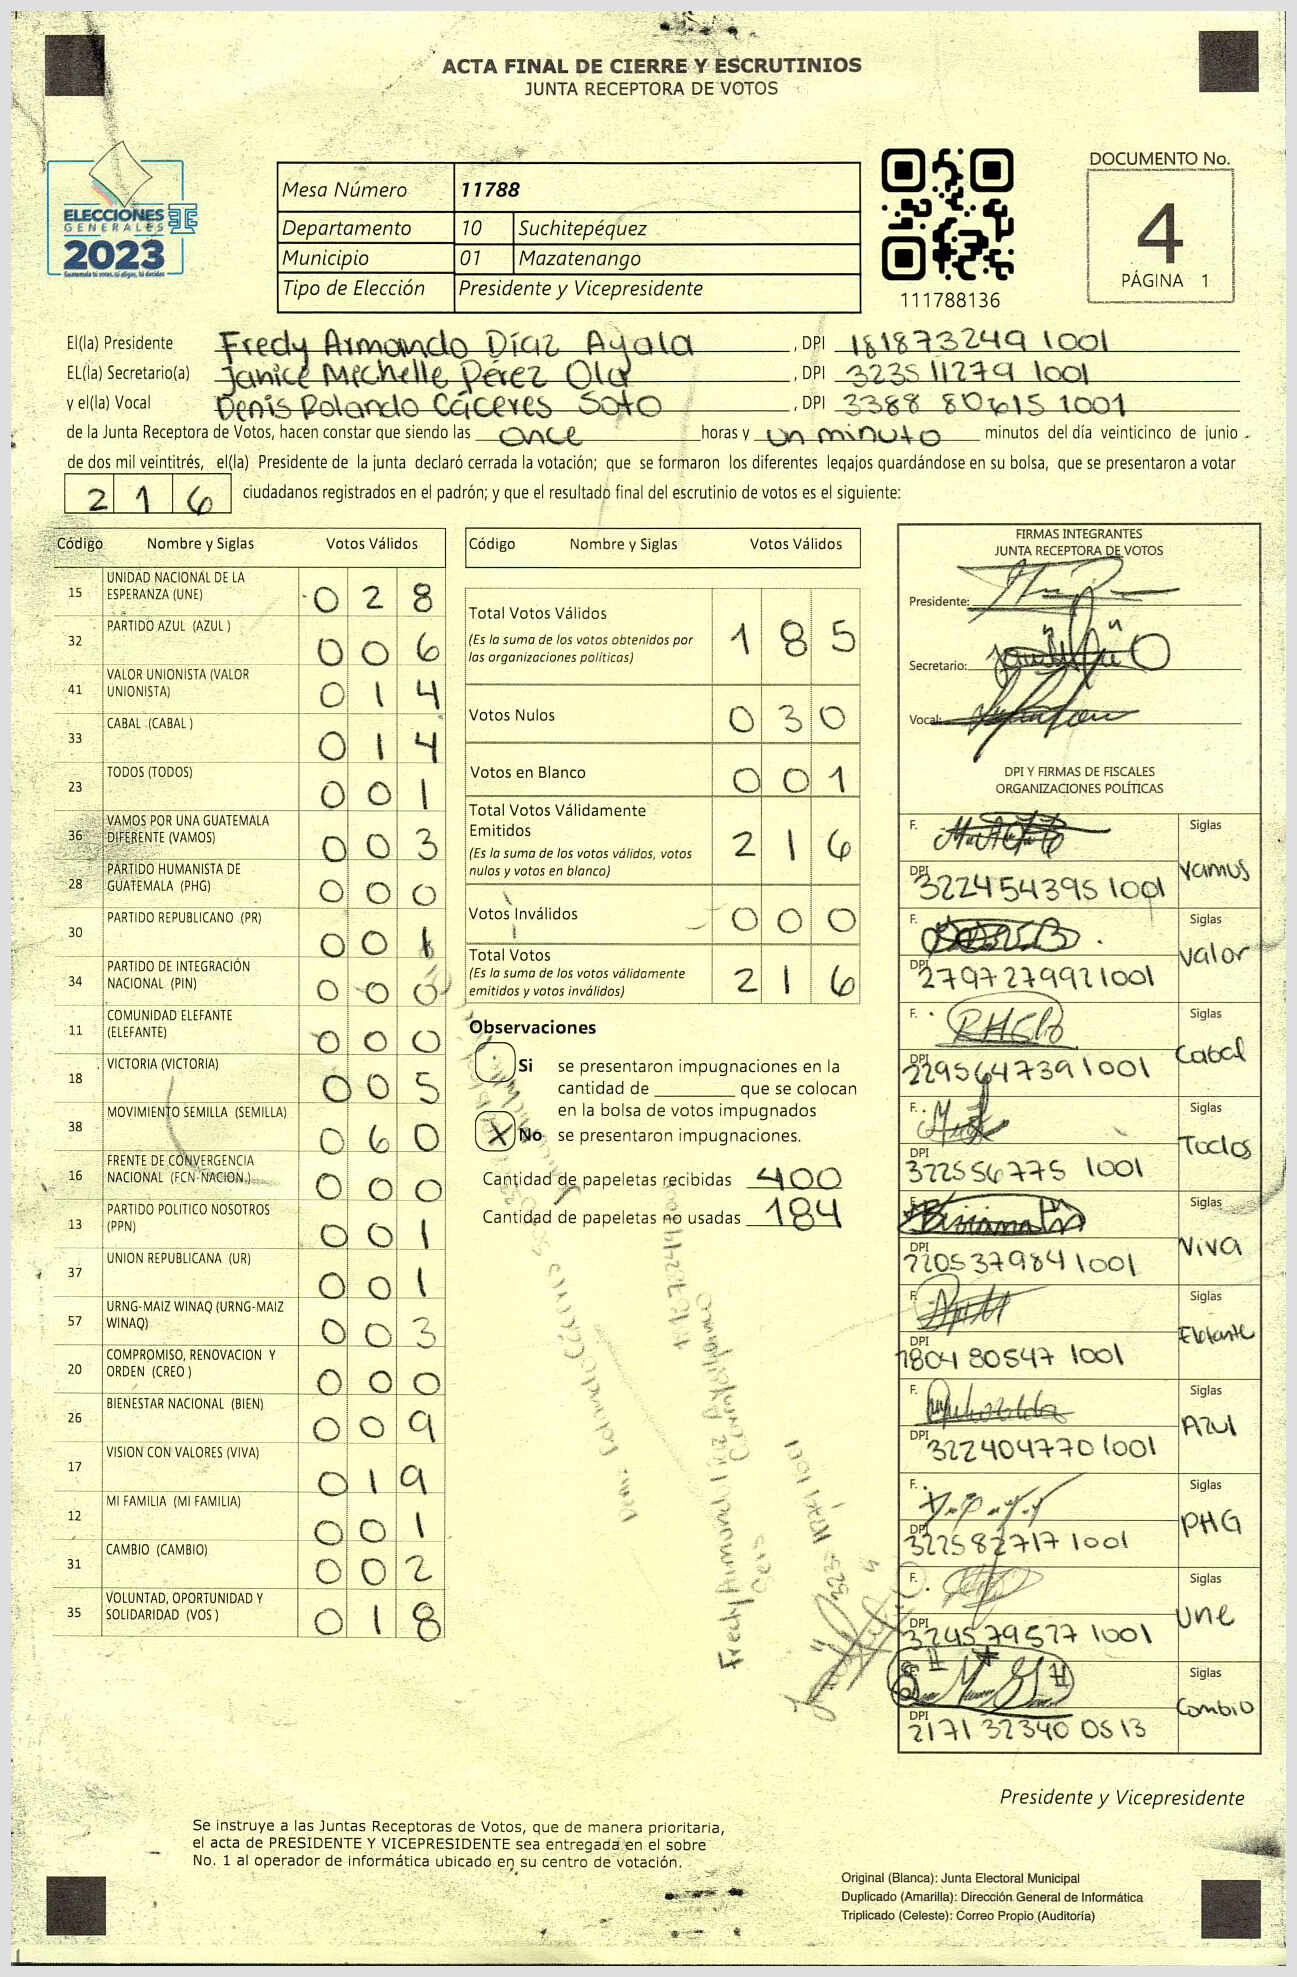 ACTA FINAL DE CIERRE Y ESCRUTINIOS
JUNTA RECEPTORA DE VOTOS
ELECCIONES
GENERALES
2023
Mesa Número 11788
Departamento 10 Suchitepéquez
Municipio 01 Mazatenango
Tipo de Elección Presidente y Vicepresidente
111788136
DOCUMENTO No.
4
PÁGINA 1
El(la) Presidente Fredy Armando Díaz Ayala , DPI 181873249 1001
EL(la) Secretario(a) Janice Mechelle Pérez Ola , DPI 323511279 1001
y el(la) Vocal Denis Rolando Cáceres Soto , DPI 3388 80615 1001
de la Junta Receptora de Votos, hacen constar que siendo las once horas y un minuto minutos del día veinticinco de junio
de dos mil veintitrés, el(la) Presidente de la junta declaró cerrada la votación; que se formaron los diferentes legajos guardándose en su bolsa, que se presentaron a votar
216 ciudadanos registrados en el padrón; y que el resultado final del escrutinio de votos es el siguiente:
Código Nombre y Siglas Votos Válidos
15 UNIDAD NACIONAL DE LA ESPERANZA (UNE) 028
32 PARTIDO AZUL (AZUL ) 006
41 VALOR UNIONISTA (VALOR UNIONISTA) 014
33 CABAL (CABAL ) 014
23 TODOS (TODOS) 001
36 VAMOS POR UNA GUATEMALA DIFERENTE (VAMOS) 003
28 PARTIDO HUMANISTA DE GUATEMALA (PHG) 000
30 PARTIDO REPUBLICANO (PR) 001
34 PARTIDO DE INTEGRACIÓN NACIONAL (PIN) 000
11 COMUNIDAD ELEFANTE (ELEFANTE) 000
18 VICTORIA (VICTORIA) 005
38 MOVIMIENTO SEMILLA (SEMILLA) 060
16 FRENTE DE CONVERGENCIA NACIONAL (FCN-NACION.) 000
13 PARTIDO POLITICO NOSOTROS (PPN) 001
37 UNION REPUBLICANA (UR) 001
57 URNG-MAIZ WINAQ (URNG-MAIZ WINAQ) 003
20 COMPROMISO, RENOVACION Y ORDEN (CREO ) 000
26 BIENESTAR NACIONAL (BIEN) 009
17 VISION CON VALORES (VIVA) 019
12 MI FAMILIA (MI FAMILIA) 001
31 CAMBIO (CAMBIO) 002
35 VOLUNTAD, OPORTUNIDAD Y SOLIDARIDAD (VOS ) 018
Código Nombre y Siglas Votos Válidos
Total Votos Válidos 185
(Es la suma de los votos obtenidos por
las organizaciones políticas)
Votos Nulos 030
Votos en Blanco 001
Total Votos Válidamente
Emitidos 216
(Es la suma de los votos válidos, votos
nulos y votos en blanco)
Votos Inválidos 000
Total Votos 216
(Es la suma de los votos válidamente
emitidos y votos inválidos)
Observaciones
Si se presentaron impugnaciones en la
cantidad de ________ que se colocan
en la bolsa de votos impugnados
X No se presentaron impugnaciones.
Cantidad de papeletas recibidas 400
Cantidad de papeletas no usadas 184
FIRMAS INTEGRANTES
JUNTA RECEPTORA DE VOTOS
Presidente:
Secretario:
Vocal:
DPI Y FIRMAS DE FISCALES
ORGANIZACIONES POLÍTICAS
F. Siglas
DPI 322454395 1001 Vamos
F. Siglas
DPI 279727992 1001 Valor
F. Siglas
DPI 229564739 1001 Cabal
F. Siglas
DPI 322556775 1001 Todos
F. Siglas
DPI 220537984 1001 Viva
F. Siglas
DPI 1804 80547 1001 Elefante
F. Siglas
DPI 322404770 1001 Azul
F. Siglas
DPI 322582717 1001 PHG
F. Siglas
DPI 324579527 1001 Une
F. Siglas
DPI 2171 32340 0513 Cambio
Presidente y Vicepresidente
Se instruye a las Juntas Receptoras de Votos, que de manera prioritaria,
el acta de PRESIDENTE Y VICEPRESIDENTE sea entregada en el sobre
No. 1 al operador de informática ubicado en su centro de votación.
Original (Blanca): Junta Electoral Municipal
Duplicado (Amarilla): Dirección General de Informática
Triplicado (Celeste): Correo Propio (Auditoría)